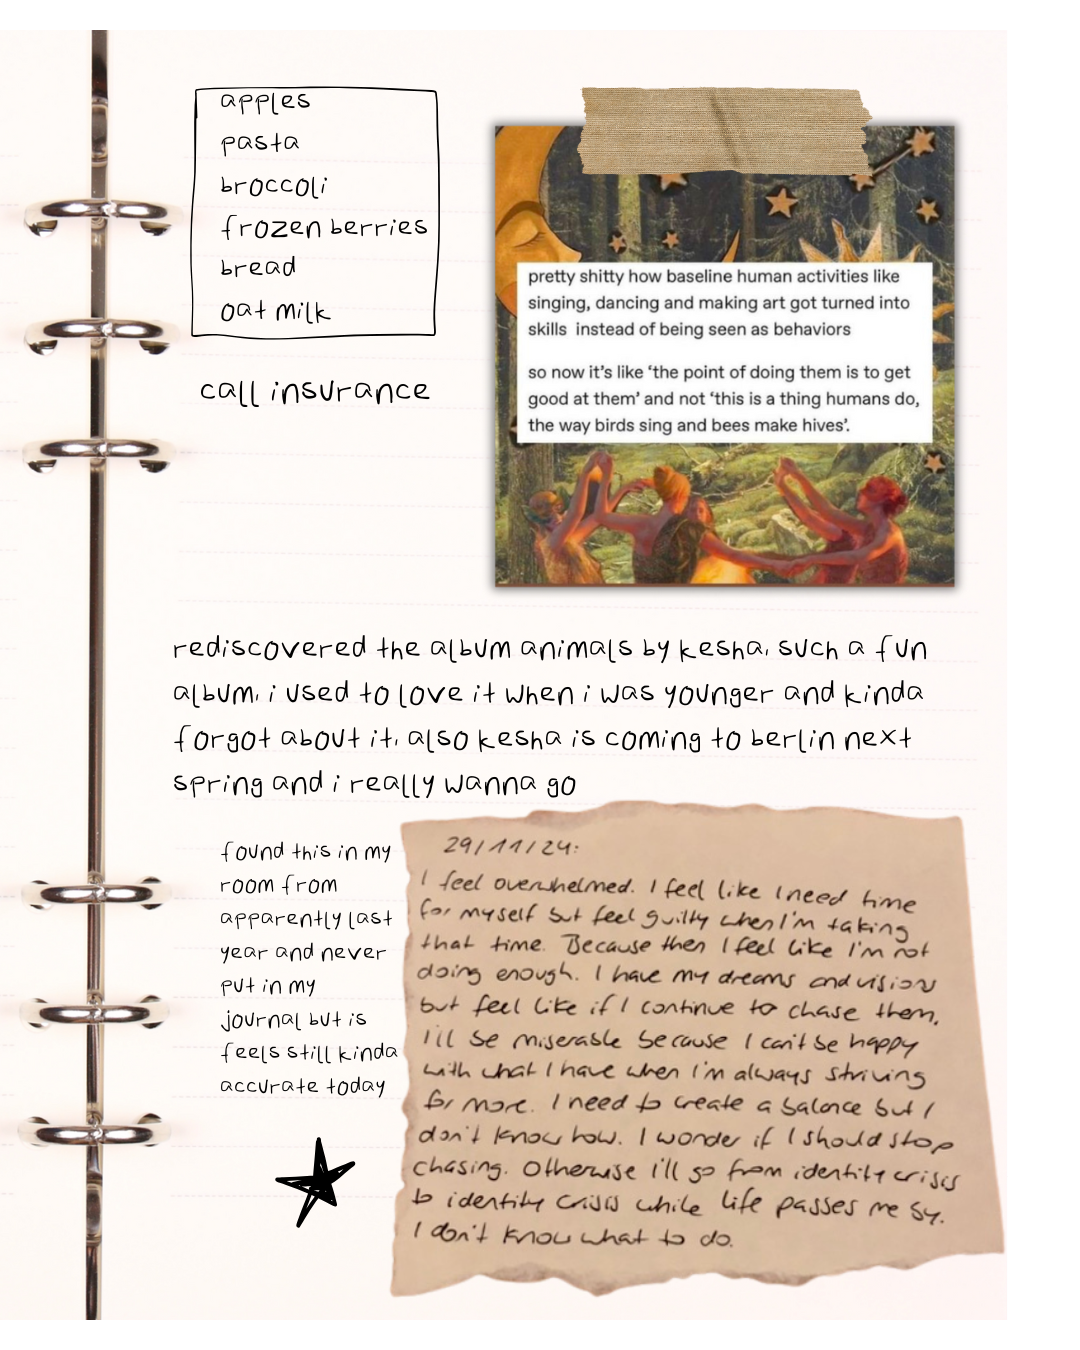 apples
pasta
broccoli
frozen berries
bread
oat milk
call insurance
pretty shitty how baseline human activities like
singing, dancing and making art got turned into
skills instead of being seen as behaviors
so now it's like 'the point of doing them is to get
good at them' and not 'this is a thing humans do,
the way birds sing and bees make hives'.
rediscovered the album animals by kesha, such a fun
album, i used to love it when i was younger and kinda
forgot about it, also kesha is coming to berlin next
spring and i really wanna go
found this in my
room from
apparently last
year and never
put in my
journal but is
feels still kinda
accurate today
29/11/24:
I feel overwhelmed. I feel like I need time
for myself but feel guilty when I'm taking
that time. Because then I feel like I'm not
doing enough. I have my dreams and visions
but feel like if I continue to chase them,
I'll be miserable because I can't be happy
with what I have when I'm always striving
for more. I need to create a balance but I
don't know how. I wonder if I should stop
chasing. Otherwise I'll go from identity crisis
to identity crisis while life passes me by.
I don't know what to do.